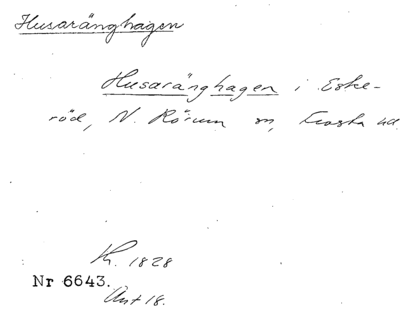 Husaränghagen
Husaränghagen i Eske-
röd, N. Rörum sn, Frosta hd.
K. 1828
Nr 6643.
Akt 18.